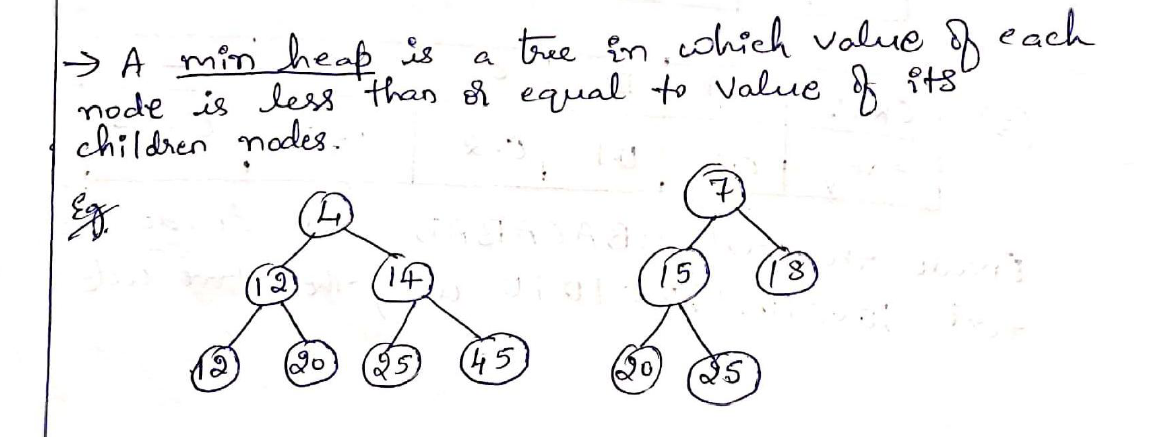 → A min heap is a tree in which value of each
node is less than or equal to value of its
children nodes.
Eg.
4
12 14
12 20 25 45
7
15 18
20 25